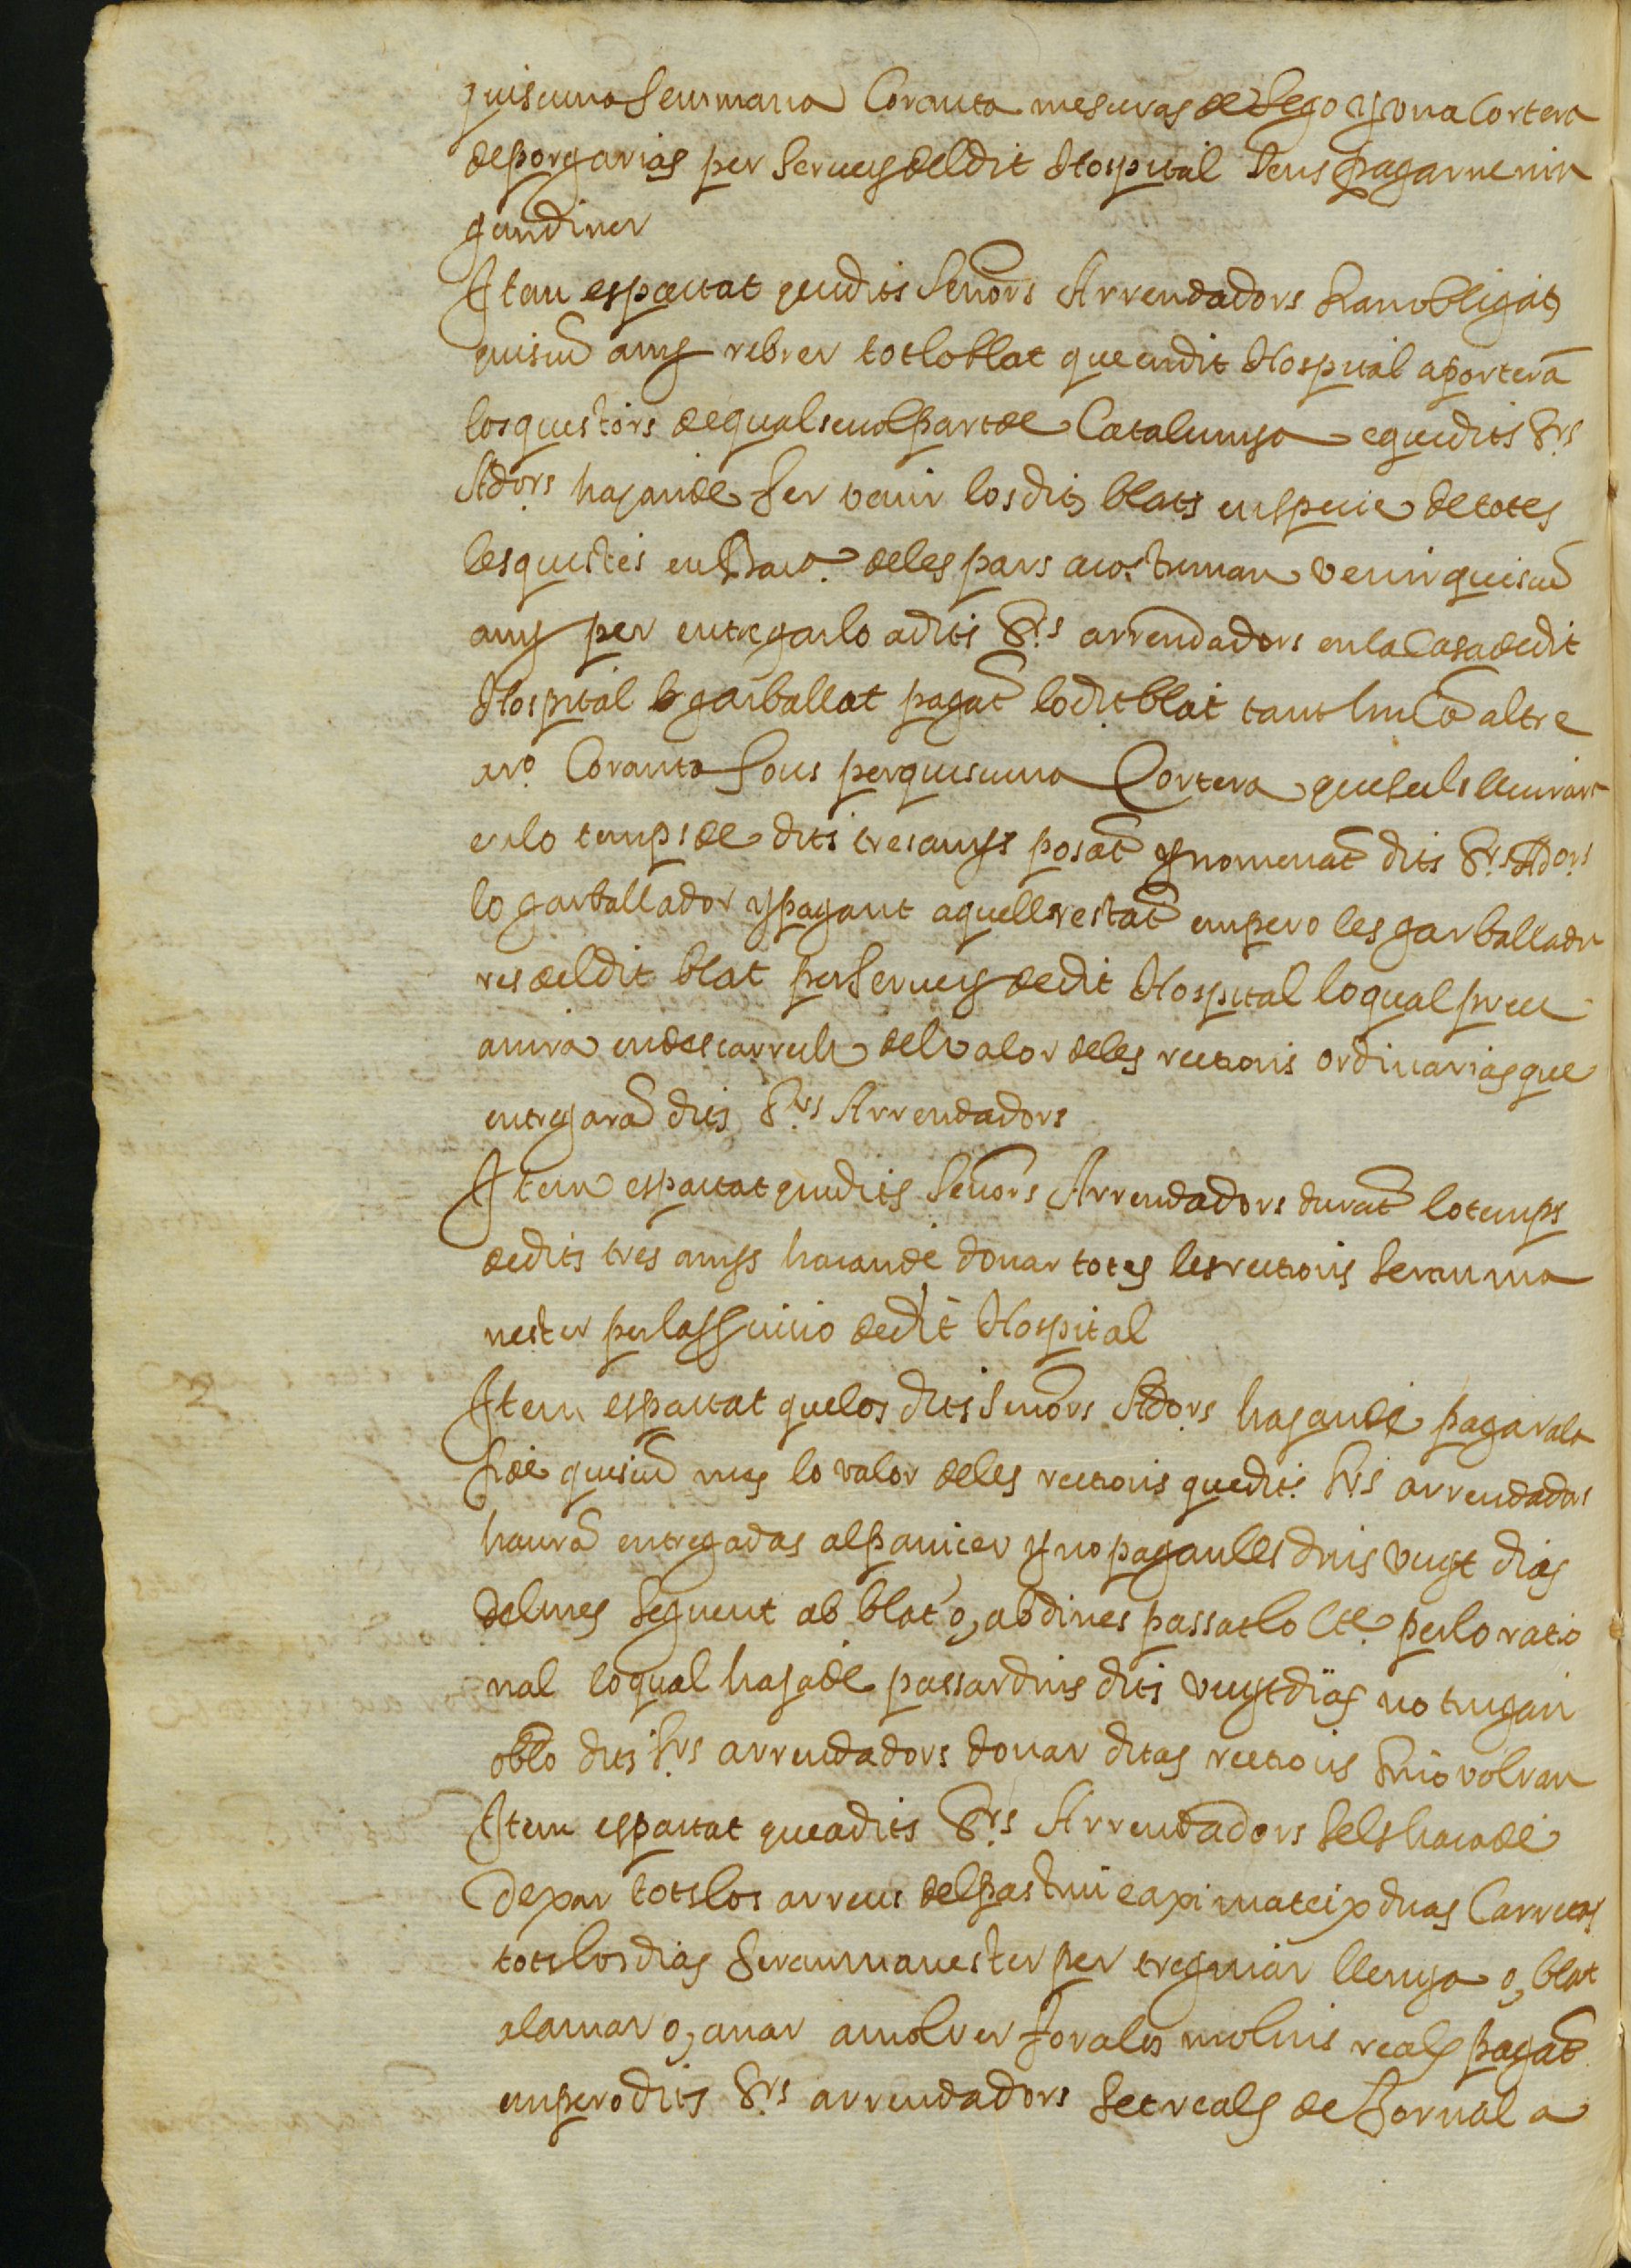 quiscuna semmana Coranta mesuras de Sego y vna Cortera
de porgarias per seruey del dit Hospital sens pagarne nin
gun diner
Item es pactat que dits Senors Arrendadors sian obligats
quiscũ any rebrer tot lo blat que en dit Hospital aporterã
los questors de qualseuol part de Catalunya e que dits Srs
Adors hajan de fer venir los dits blats en specie de totes
les questes en Barª. de les pars acostuman venir quiscũ
any per entregarlo a dits Srs arrendadors en la Casa de dit
Hospital garballat pagãt lo dit blat tant hu cõ altre
aro Coranta sous per quiscuna Cortera que sels lliurara
en lo temps de dits tres anys posãt y nomenãt dits Srs Adors
lo garballador y pagant aquell restãt empero les garballadu
res del dit blat per seruey de dit Hospital lo qual preu
anira en descarrech del valor de les rections ordinarias que
entregarã dits Srs Arrendadors
Item es pactat que dits Senors Arrendadors durãt lo temps
de dits tres anys hajan de donar totes les rections seran ma
nester per la seruicio de dit Hospital
Item es pactat que los dits Senors Adors hajan de pagar a la
fi de quiscũ mes lo valor de les rections que dits Srs arrendadors
haurã entregadas al panicer y no paganles dins vuyt dias
del mes seguent ab blat o, ab dines passat lo Cte. per lo ratio
nal lo qual haja de passar dins dits vuyt dias no tingan
obblo dits Srs arrendadors donar ditas rections si no volran
Item es pactat que a dits Srs Arrendadors sels haja de
dexar tots los arreus del pastrin e axi mateix duas Carretas
tots los dias seran manester per treginar llenya o, blat
a la mar o, anar a molrer fora los molins reals pagãt
empero dits Srs arrendadors set reals de Jornal a